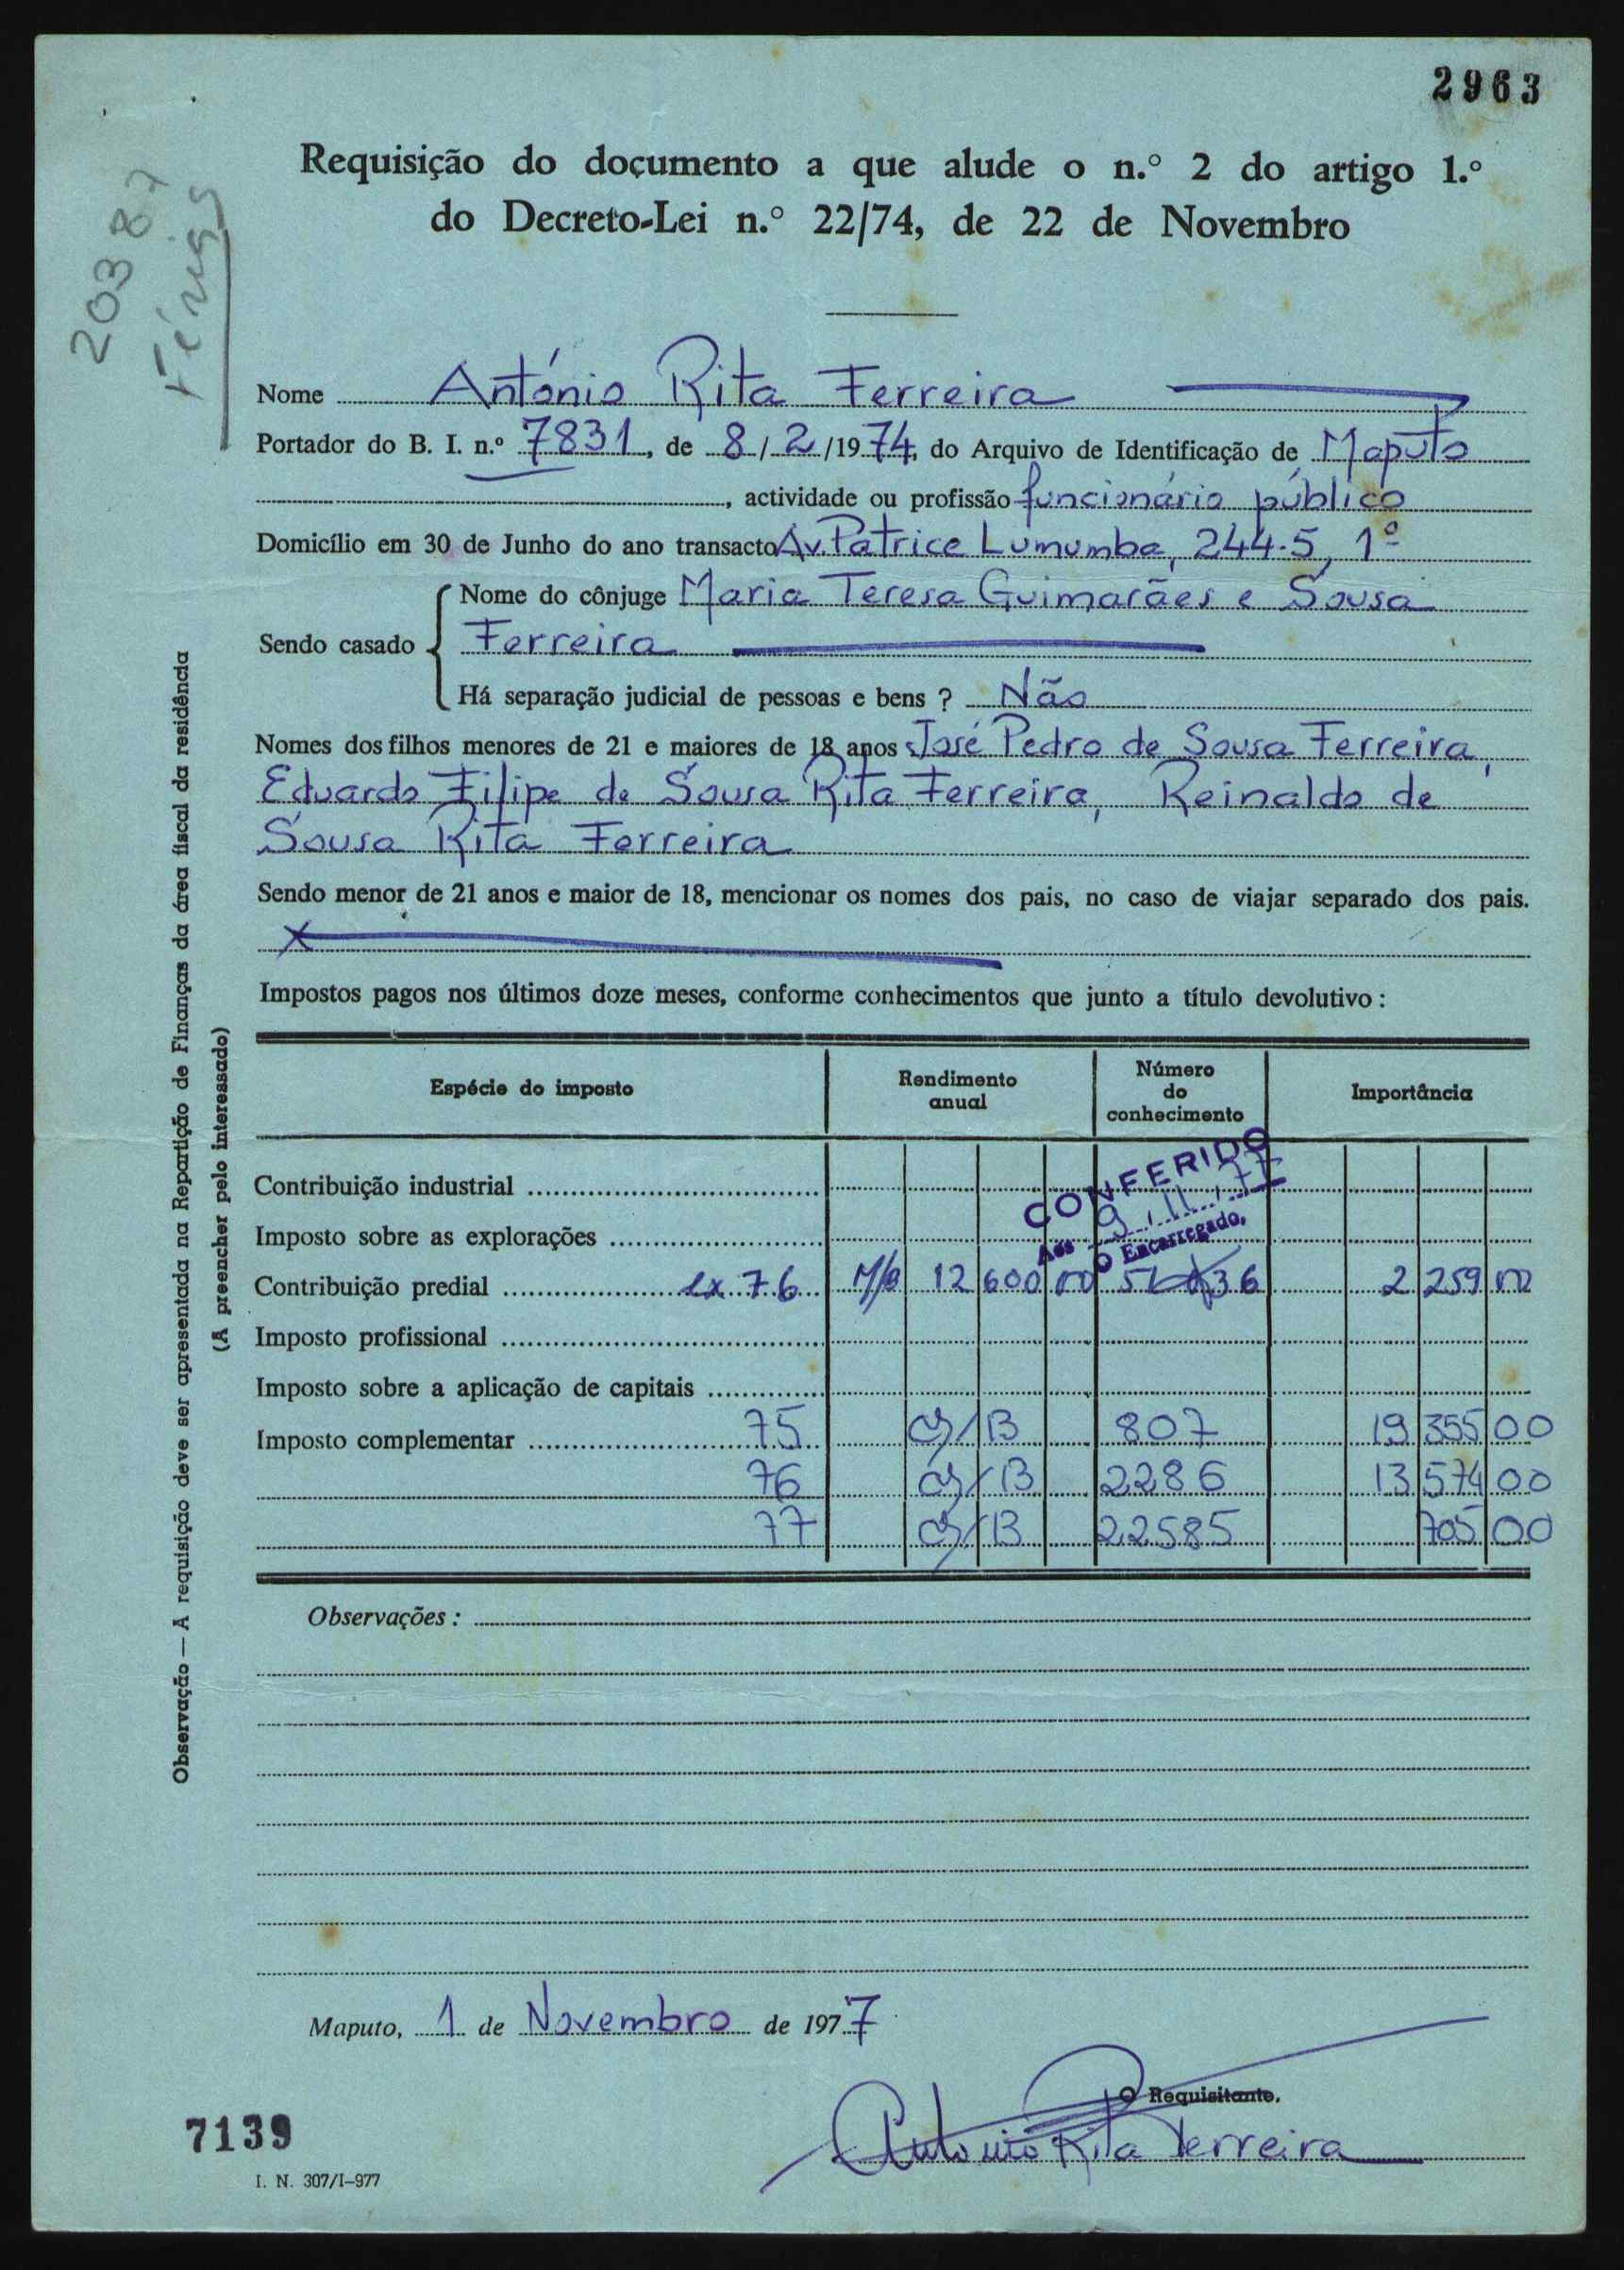 2963
20387
Férias
Requisição do documento a que alude o n.º 2 do artigo 1.º
do Decreto-Lei n.º 22/74, de 22 de Novembro
Nome António Rita Ferreira
Portador do B. I. n.º 7831, de 8/2/1974, do Arquivo de Identificação de Maputo
, actividade ou profissão funcionário público
Domicílio em 30 de Junho do ano transacto Av. Patrice Lumumba, 244-5, 1º
Sendo casado
Nome do cônjuge Maria Teresa Guimarães e Sousa
Ferreira
Há separação judicial de pessoas e bens ? Não
Nomes dos filhos menores de 21 e maiores de 18 anos José Pedro de Sousa Ferreira,
Eduardo Filipe de Sousa Rita Ferreira, Reinaldo de
Sousa Rita Ferreira
Sendo menor de 21 anos e maior de 18, mencionar os nomes dos pais, no caso de viajar separado dos pais.
Impostos pagos nos últimos doze meses, conforme conhecimentos que junto a título devolutivo :
Espécie do imposto Rendimento anual Número do conhecimento Importância
CONFERIDO
Aos 9 11 77
O Encarregado,
Contribuição industrial
Imposto sobre as explorações
Contribuição predial ex 76 12 600 00 2 259 00
Imposto profissional
Imposto sobre a aplicação de capitais
Imposto complementar 75 807 19 355 00
76 2286 13 574 00
77 22585 705 00
Observações :
Maputo, 1 de Novembro de 1977
O Requisitante,
Antonio Rita Ferreira
7139
I. N. 307/I-977
Observação — A requisição deve ser apresentada na Repartição de Finanças da área fiscal da residência
(A preencher pelo interessado)